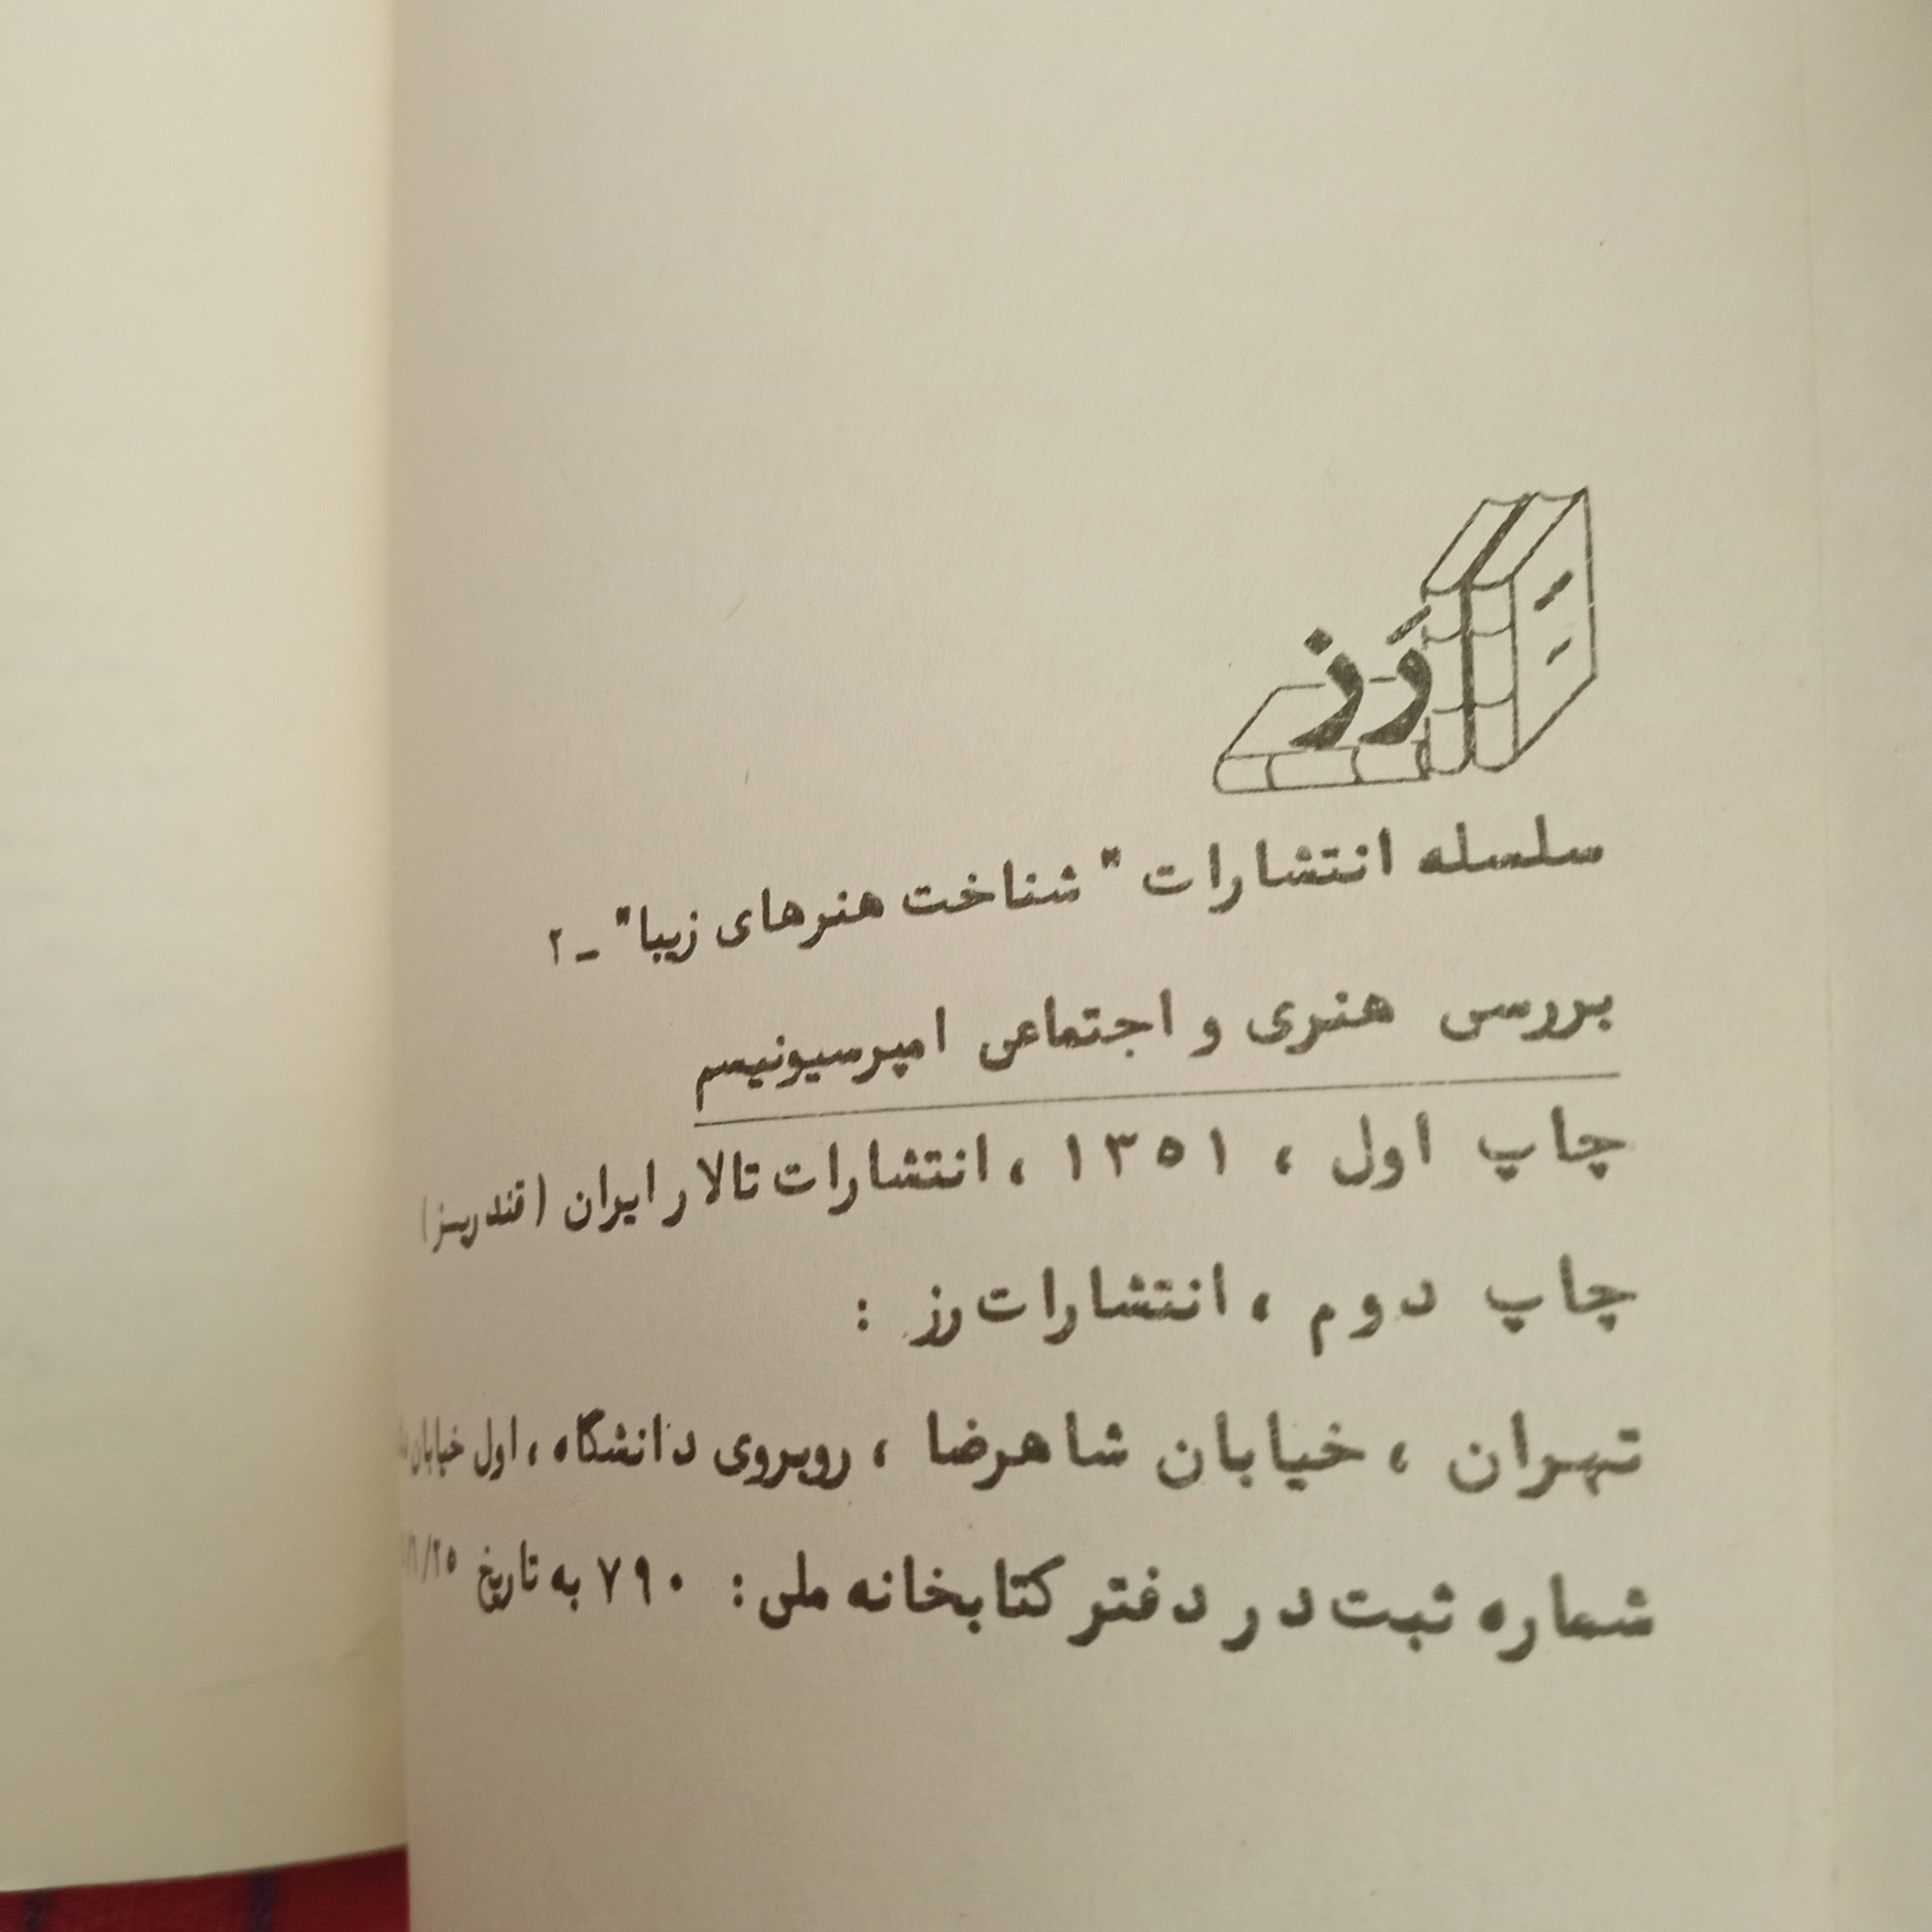 رَز
سلسله انتشارات "شناخت هنرهای زیبا" ـ ۲
بررسی هنری و اجتماعی امپرسیونیسم
چاپ اول ، ۱۳۵۱ ، انتشارات تالار ایران (قندریز)
چاپ دوم ، انتشارات رز :
تهران ، خیابان شاهرضا ، روبروی دانشگاه ، اول خیابان
شماره ثبت در دفتر کتابخانه ملی : ۷۹۰ به تاریخ